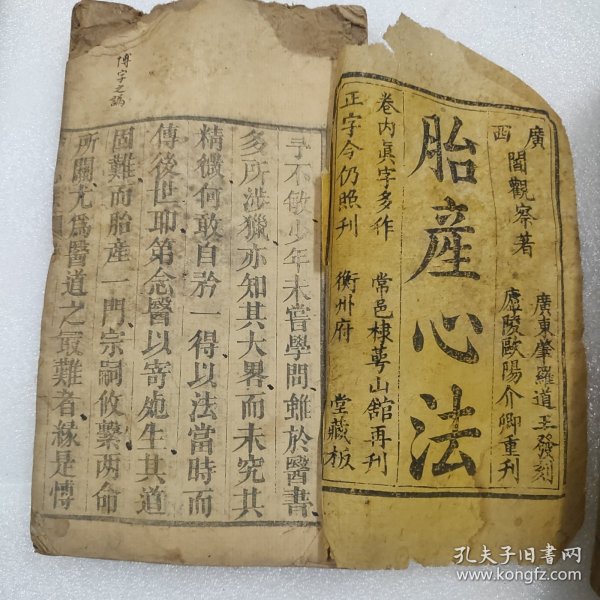 廣西
閻觀察著
廣東肇羅道王發刻
廬陵歐陽介卿重刊
胎產心法
卷内真字多作
正字今仍照刊
常邑棣萼山館再刊
衡州府
堂藏板
傅字之譌
予不敏少年未嘗學問雖於醫書
多所涉獵亦知其大畧而未究其
精微何敢自矜一得以法當時而
傳後世耶第念醫以寄死生其道
固難而胎產一門宗嗣攸繫两命
所關尤爲醫道之最難者緣是愽
孔夫子旧书网
www.kongfz.com